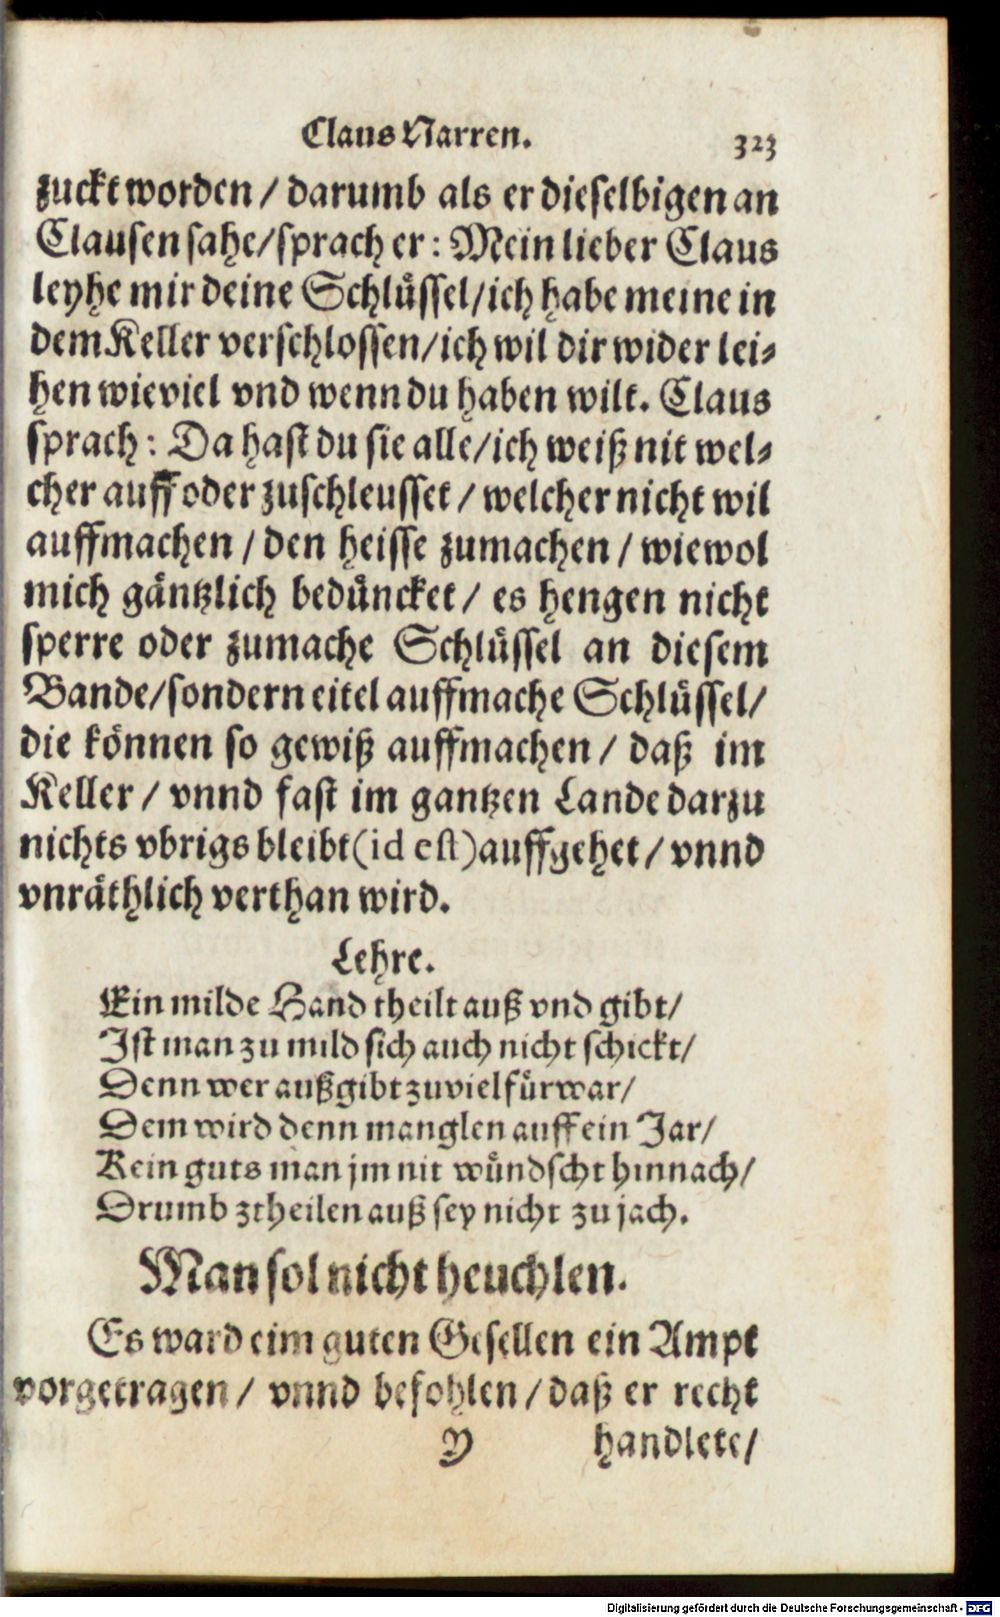 Claus Narren. 323
zuckt worden / darumb als er dieselbigen an
Clausen sahe/sprach er: Mein lieber Claus
leyhe mir deine Schlüssel/ich habe meine in
dem Keller verschlossen/ich wil dir wider lei-
hen wieviel vnd wenn du haben wilt. Claus
sprach: Da hast du sie alle/ich weiß nit wel-
cher auff oder zuschleusset / welcher nicht wil
auffmachen / den heisse zumachen / wiewol
mich gäntzlich bedüncket / es hengen nicht
sperre oder zumache Schlüssel an diesem
Bande/sondern eitel auffmache Schlüssel/
die können so gewiß auffmachen / daß im
Keller / vnnd fast im gantzen Lande darzu
nichts vbrigs bleibt(id est)auffgehet / vnnd
vnräthlich verthan wird.
Lehre.
Ein milde Hand theilt auß vnd gibt/
Ist man zu mild sich auch nicht schickt/
Denn wer außgibt zuviel fürwar/
Dem wird denn manglen auff ein Jar/
Kein guts man jm nit wündscht hinnach/
Drumb ztheilen auß sey nicht zu jach.
Man sol nicht heuchlen.
Es ward eim guten Gesellen ein Ampt
vorgetragen / vnnd befohlen / daß er recht
Y handlete/
Digitalisierung gefördert durch die Deutsche Forschungsgemeinschaft - DFG